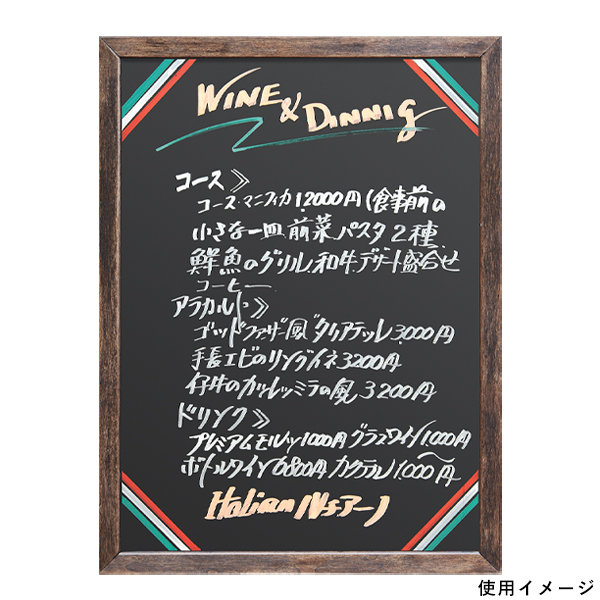 WINE & DINNIG
コース≫
コース・マニフィカ 12000円 (食事前の
小さな一皿 前菜 パスタ2種
鮮魚のグリル 和牛 デザート盛合せ
コーヒー
アラカルト≫
ゴッドファザー風 タリアテッレ 3,000円
手長エビのリングイネ 3200円
仔牛のカツレツミラの風 3200円
ドリンク≫
プレミアムモルツ 1000円 グラスワイン 1,000円〜
ボトルワイン 6800円 カクテル 1,000円
Italian
使用イメージ